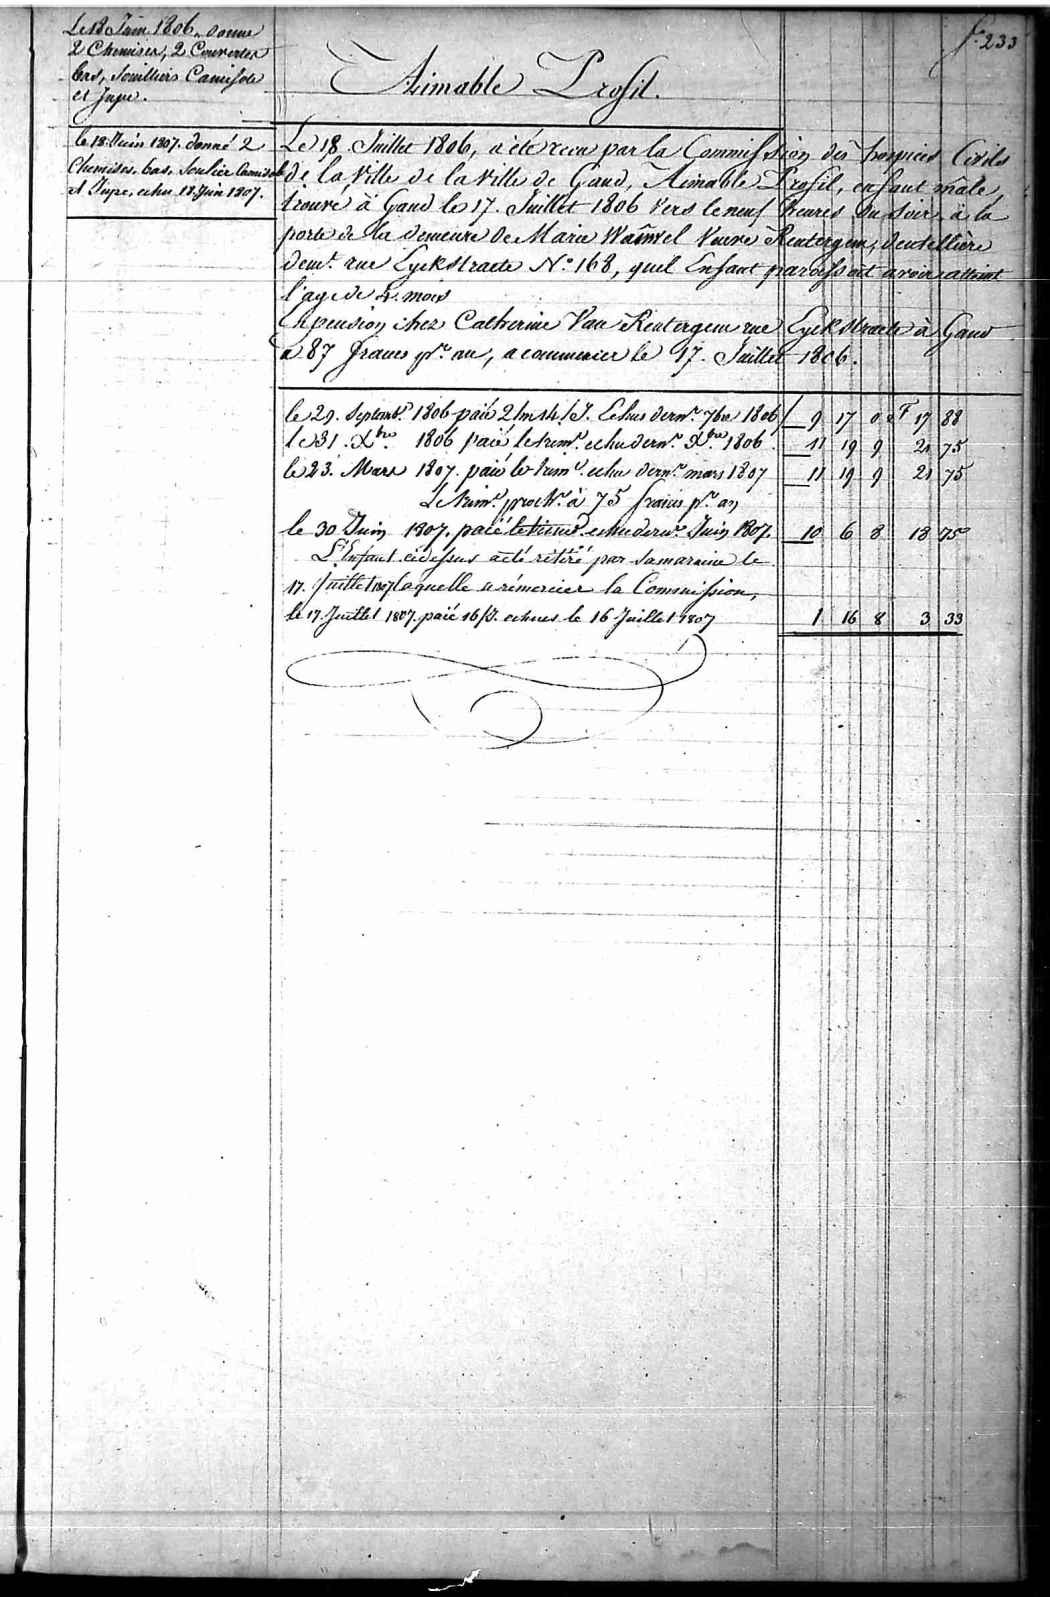 f.° 233
Le 18 Juin 1806, donné
2 Chemises, 2 Couvertes
bas, Souilliers Camisole
et Jupe.
le 18 Juin 1807. donné 2
Chemises, bas, Soulier Camisole
et Jupe, echu 18 Juin 1807.
Aimable Profil.
Le 18 Juillet 1806, a été recu par la Commission des hospices Civils
de la Ville de la Ville de Gand, Aimable Profil, enfant mâle,
trouvé à Gand le 17. Juillet 1806 vers le neuf heures du soir, à la
porte de la demeure de Marie Veuve Rentergem, dentellière
demt. rue Eyckstraete N.° 168, quel Enfant paroissoit avoir atteint
l'age de 4. mois
En pension chez Catherine Van Rentergem rue Eyckstraete à Gand
a 87 francs pr. an, a commencer le 17. Juillet 1806.
le 29. Septembr. 1806 paié 2 m 14 J. Echus dernr. 7bre 1806 9 17 0 F 17 88
le 31. Xbre 1806 paié le trimr. echu dernr. Xbre 1806 11 19 9 21 75
le 23. Mars 1807. paié le trimr. echu dernr. mars 1807 11 19 9 21 75
Le trimr. prochn. à 75 francs pr. an
le 30 Juin 1807. paié le trimr. echu dernr. Juin 1807. 10 6 8 18 75
L'Enfant cidessus a été rétiré par sa maraine le
17. Juillet 1807 laquelle a rémercier la Commission,
le 17. Juillet 1807. paié 16 J. echues le 16 Juillet 1807 1 16 8 3 33